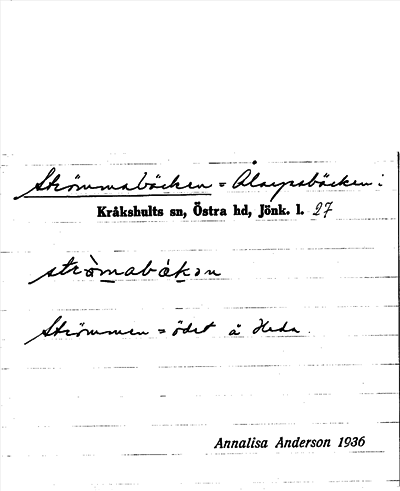 Strömmabäcken = Ålaryssbäcken:
Kråkshults sn, Östra hd, Jönk. l. 27
strò̱mabáḵən
Strömmen = ödet å Heda.
Annalisa Anderson 1936